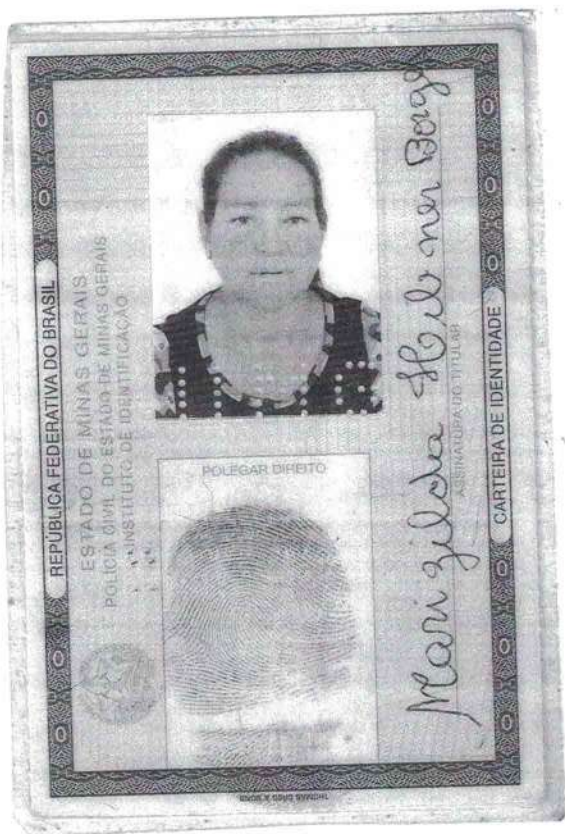 REPÚBLICA FEDERATIVA DO BRASIL
ESTADO DE MINAS GERAIS
POLÍCIA CIVIL DO ESTADO DE MINAS GERAIS
INSTITUTO DE IDENTIFICAÇÃO
POLEGAR DIREITO
Marizilda Hubner Borges
ASSINATURA DO TITULAR
CARTEIRA DE IDENTIDADE
THOMAS GREG & SONS